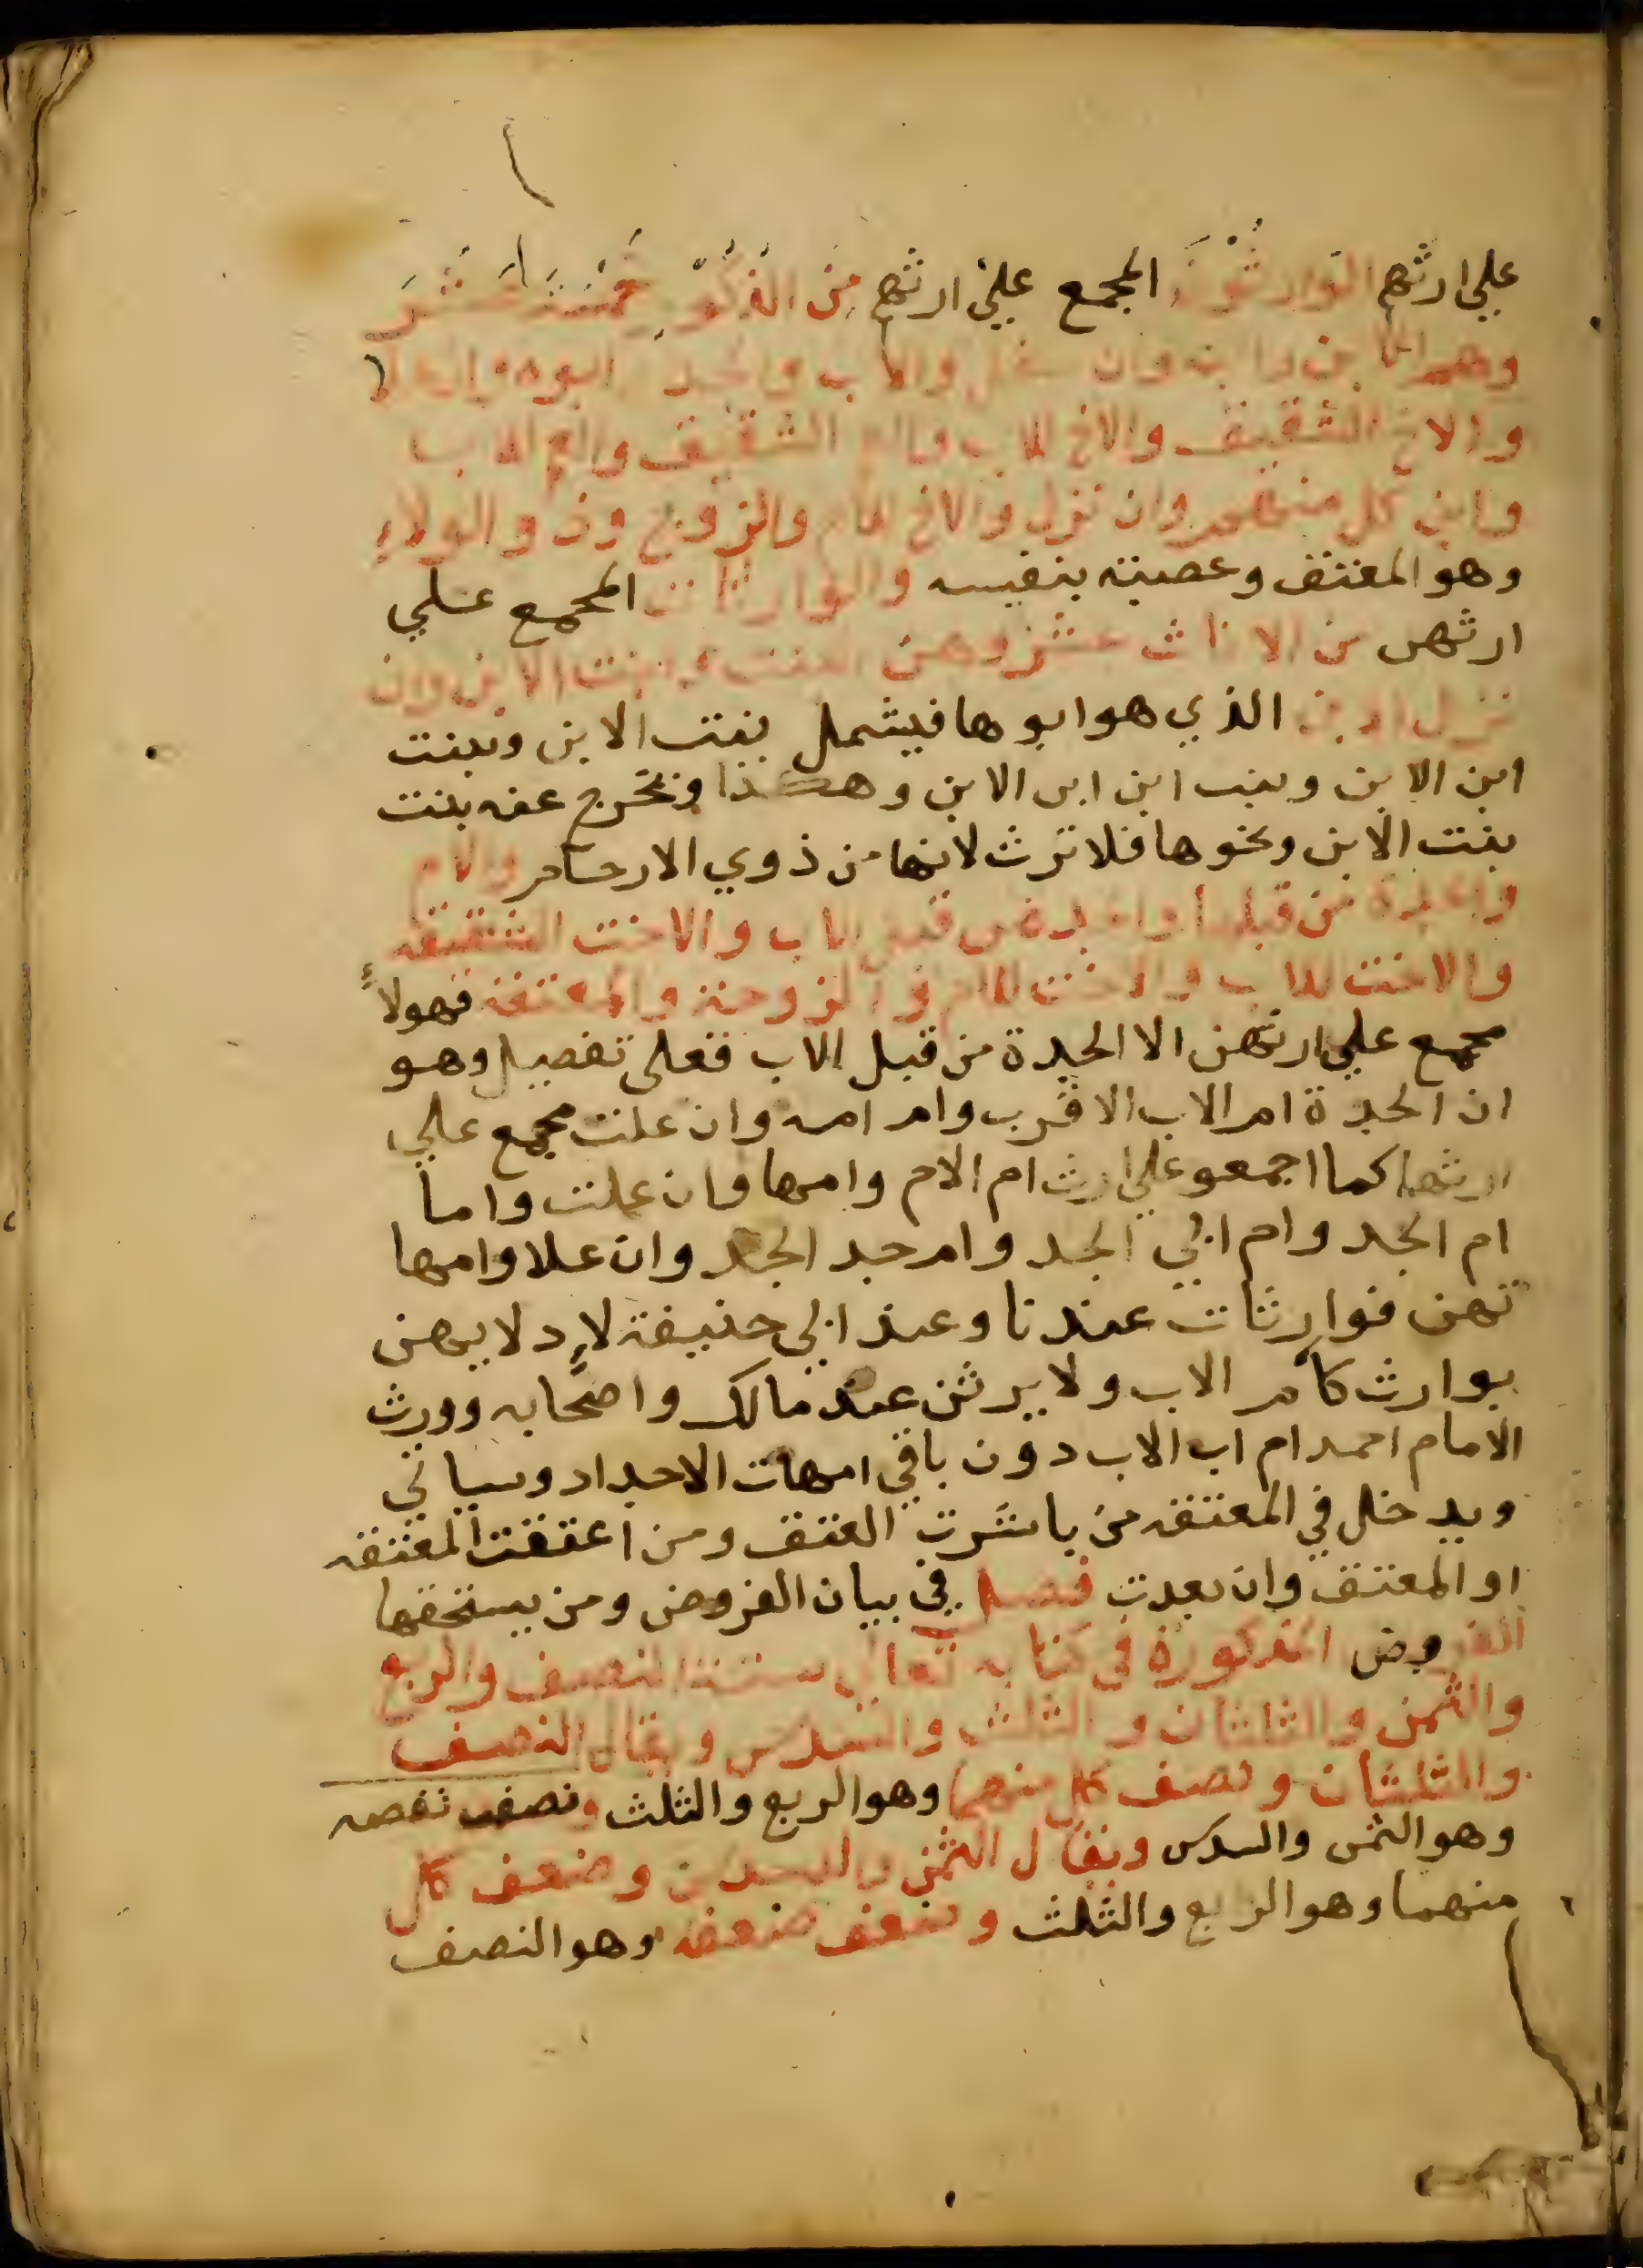 علي ارثهم الوارثون المجمع علي ارثهم من الذكور خمسة عشر
وهم الابن وابنه وان سفل والاب والجد ابوه وان علا
والاخ الشقيق والاخ للاب والعم الشقيق والعم للاب
وابن كل منهم وان نزل والاخ للام والزوج وذو الولاء
وهو المعتق وعصبته بنفسه والوارثات المجمع علي
ارثهن من الاناث عشر وهن البنت وبنت الابن وان
نزل الابن الذي هو ابوها فيشمل بنت الابن وبنت
ابن الابن وبنت ابن ابن الابن وهكذا ونخرج عنه بنت
بنت الابن ونحوها فلا ترث لانها من ذوي الارحام والام
والجدة من قبلها والجدة من قبل الاب والاخت الشقيقه
والاخت للاب والاخت للام والزوجة والمعتقة فهولاء
مجمع علي ارثهن الا الجدة من قبل الاب فعلى تفصيل وهو
ان الجدة ام الاب الاقرب وام امه وان علت مجمع علي
ارثها كما اجمعو علي ارث ام الام وامها وان علت واما
ام الجد وام ابي الجد وام جد الجد وان علا وامها
تهن فوارثات عندنا وعند ابي حنيفة لادلايهن
بوارث كام الاب ولا يرثن عند مالك واصحابه وورث
الامام احمد ام اب الاب دون باقي امهات الاجداد وسياتي
ويدخل في المعتقه من باشرت العتق ومن اعتقت المعتقه
او المعتق وان بعدت فصل في بيان الفروض ومن يستحقها
الفروض المذكورة في كتابه تعالي ستة النصف والربع
والثمن والثلثان والثلث والسدس ويقال النصف
والثلثان ونصف كل منهما وهو الربع والثلث ونصف نصفه
وهو الثمن والسدس ويقال الثمن والسدس وضعف كل
منهما وهو الربع والثلث وضعف ضعفه وهو النصف